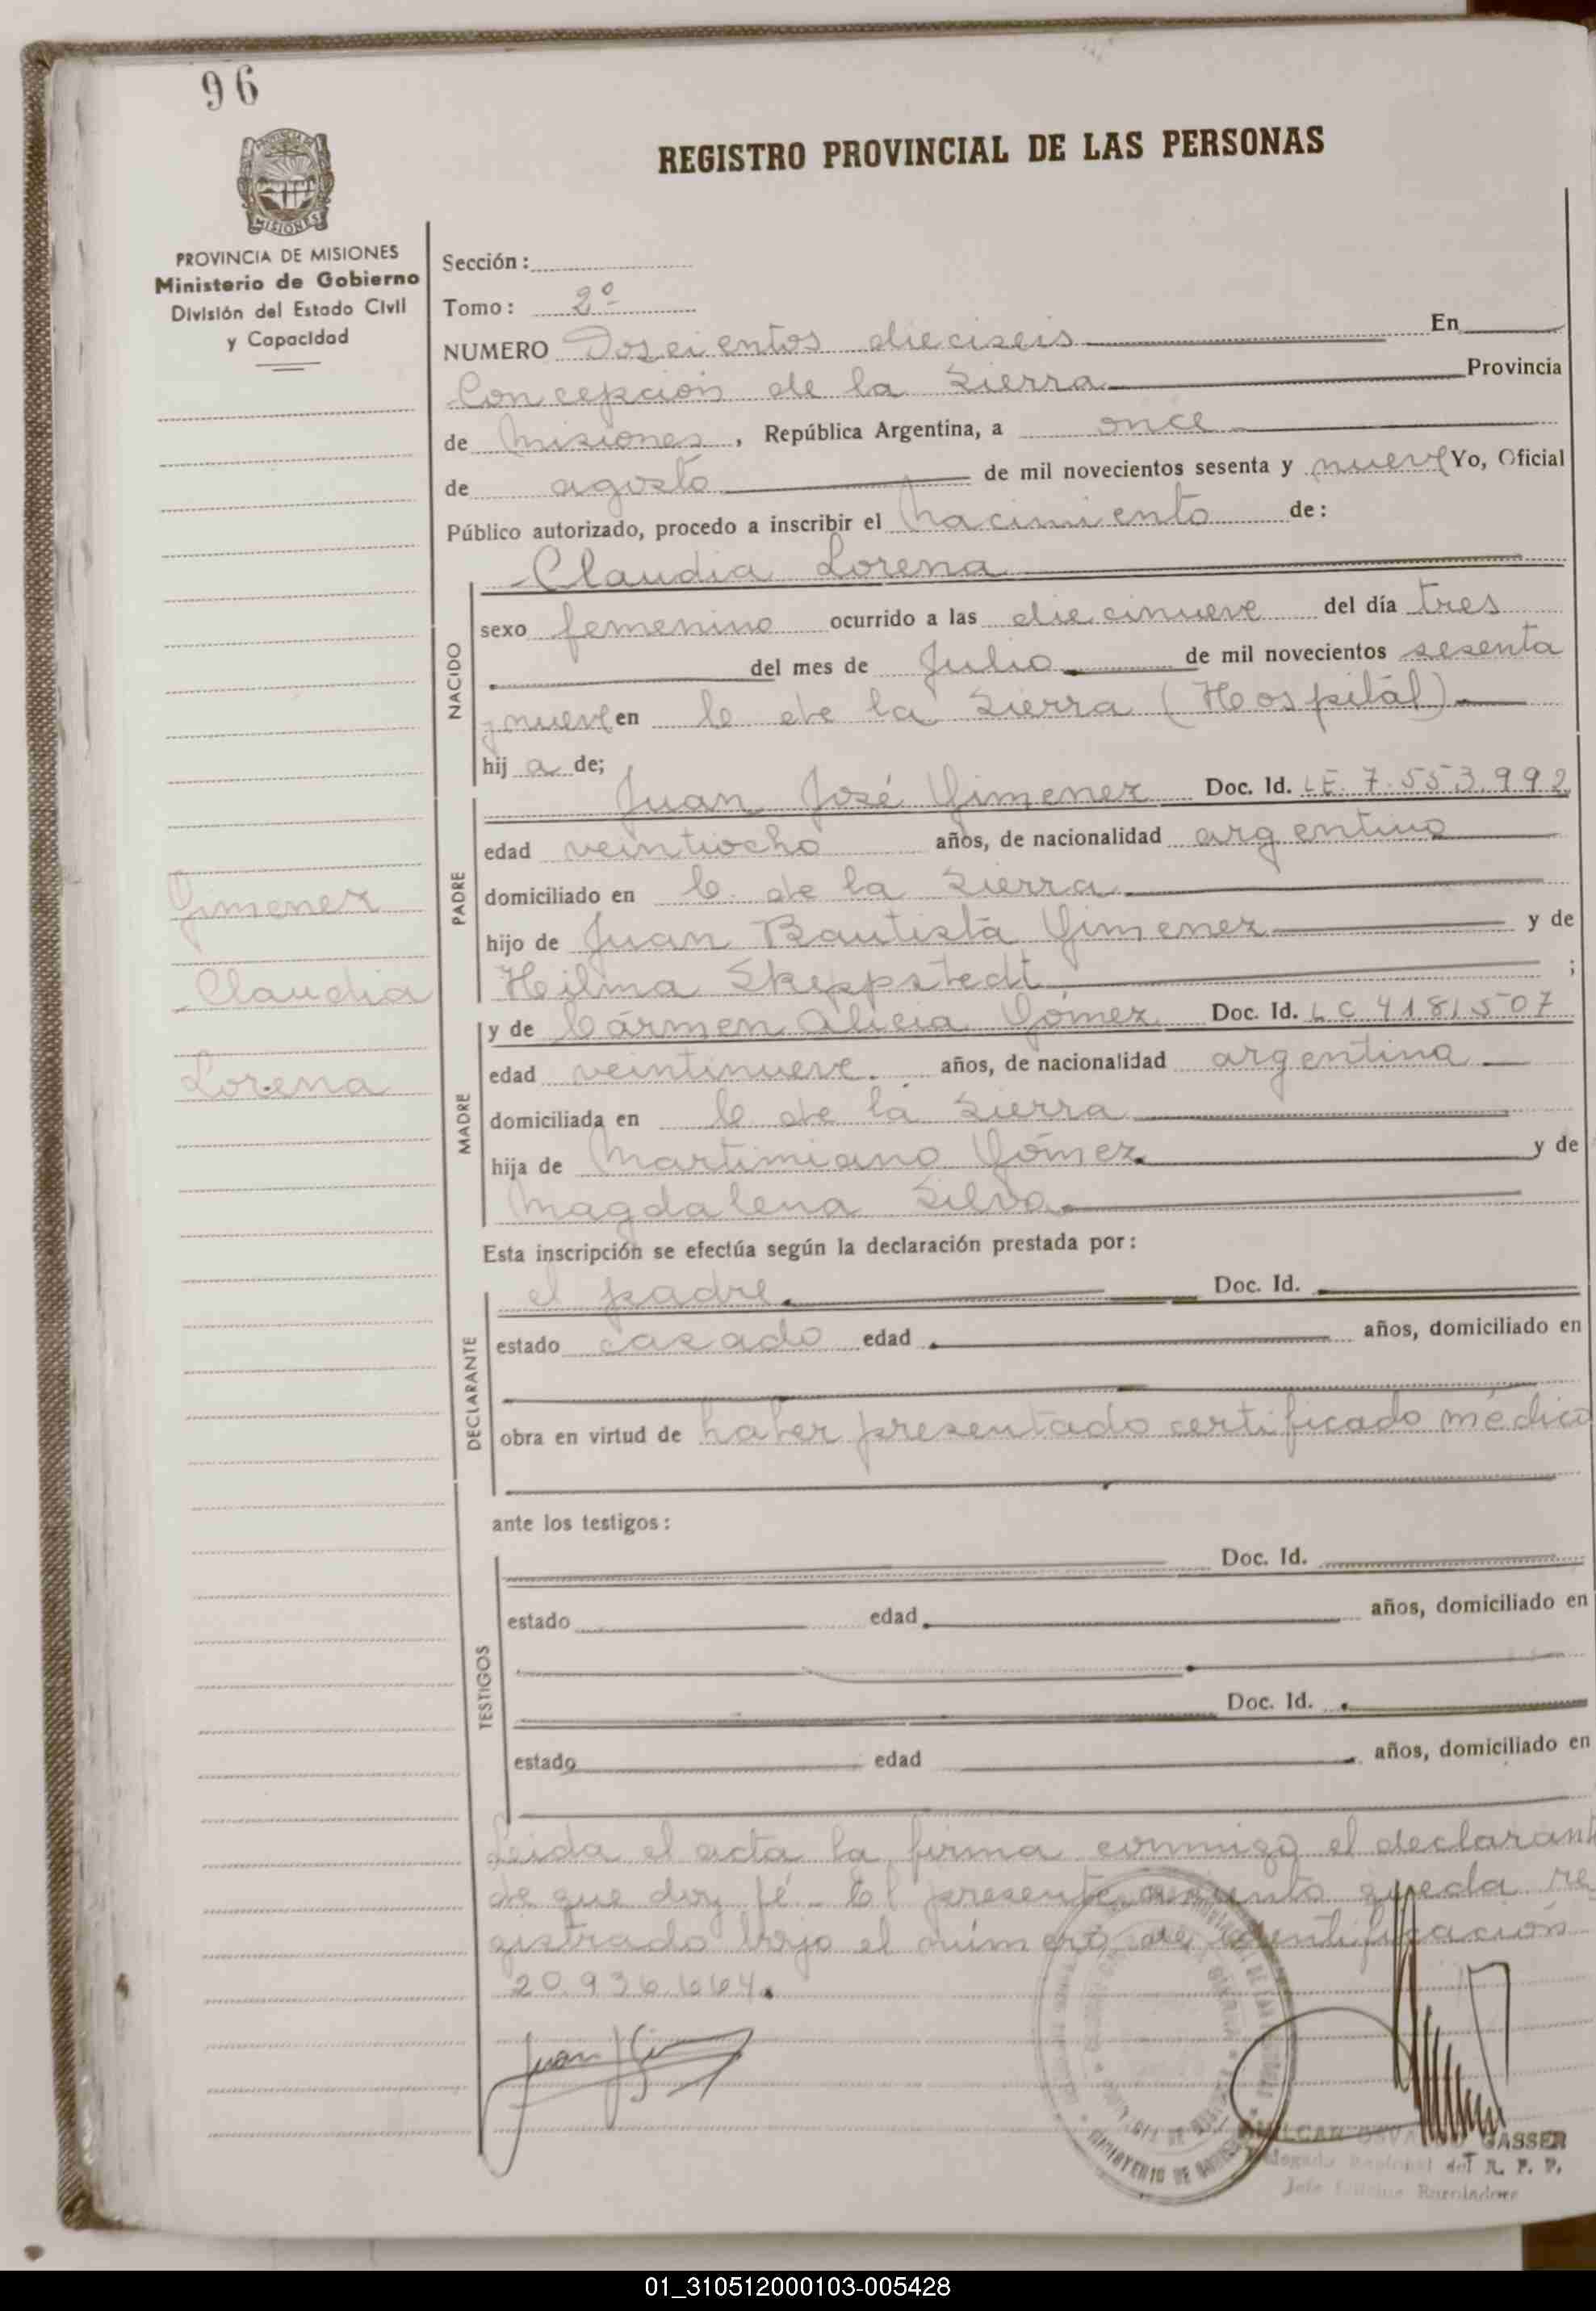 96
REGISTRO PROVINCIAL DE LAS PERSONAS
PROVINCIA DE MISIONES
Ministerio de Gobierno
División del Estado Civil
y Capacidad
Sección:
Tomo: 2º
NUMERO Doscientos dieciseis En
Concepción de la Sierra Provincia
de Misiones, República Argentina, a once
de agosto de mil novecientos sesenta y nueve Yo, Oficial
Público autorizado, procedo a inscribir el nacimiento de:
NACIDO
Claudia Lorena
sexo femenino ocurrido a las diecinueve del día tres
del mes de Julio de mil novecientos sesenta
y nueve en C de la Sierra (Hospital)
hij a de;
PADRE
Juan José Gimenez Doc. Id. LE. 7.553.992
edad veintiocho años, de nacionalidad argentino
domiciliado en C. de la Sierra
hijo de Juan Bautista Gimenez y de
Hilma Skeppstedt ;
MADRE
y de Cármen Alicia Gómez Doc. Id. L C 4181507
edad veintinueve. años, de nacionalidad argentina
domiciliada en C de la Sierra
hija de Martimiano Gómez y de
Magdalena Silva
Gimenez
Claudia
Lorena
Esta inscripción se efectúa según la declaración prestada por:
DECLARANTE
el padre Doc. Id.
estado casado edad años, domiciliado en
obra en virtud de haber presentado certificado médico
ante los testigos:
TESTIGOS
Doc. Id.
estado edad años, domiciliado en
Doc. Id.
estado edad años, domiciliado en
Leida el acta la firma conmigo el declarant
de que doy fé - El presente queda re
gistrado bajo el número de identificación
20.936.664.
Juan J Gi
MINISTERIO DE
GASSER
Delegado Regional del R. P. P.
Jefe
01_310512000103-005428